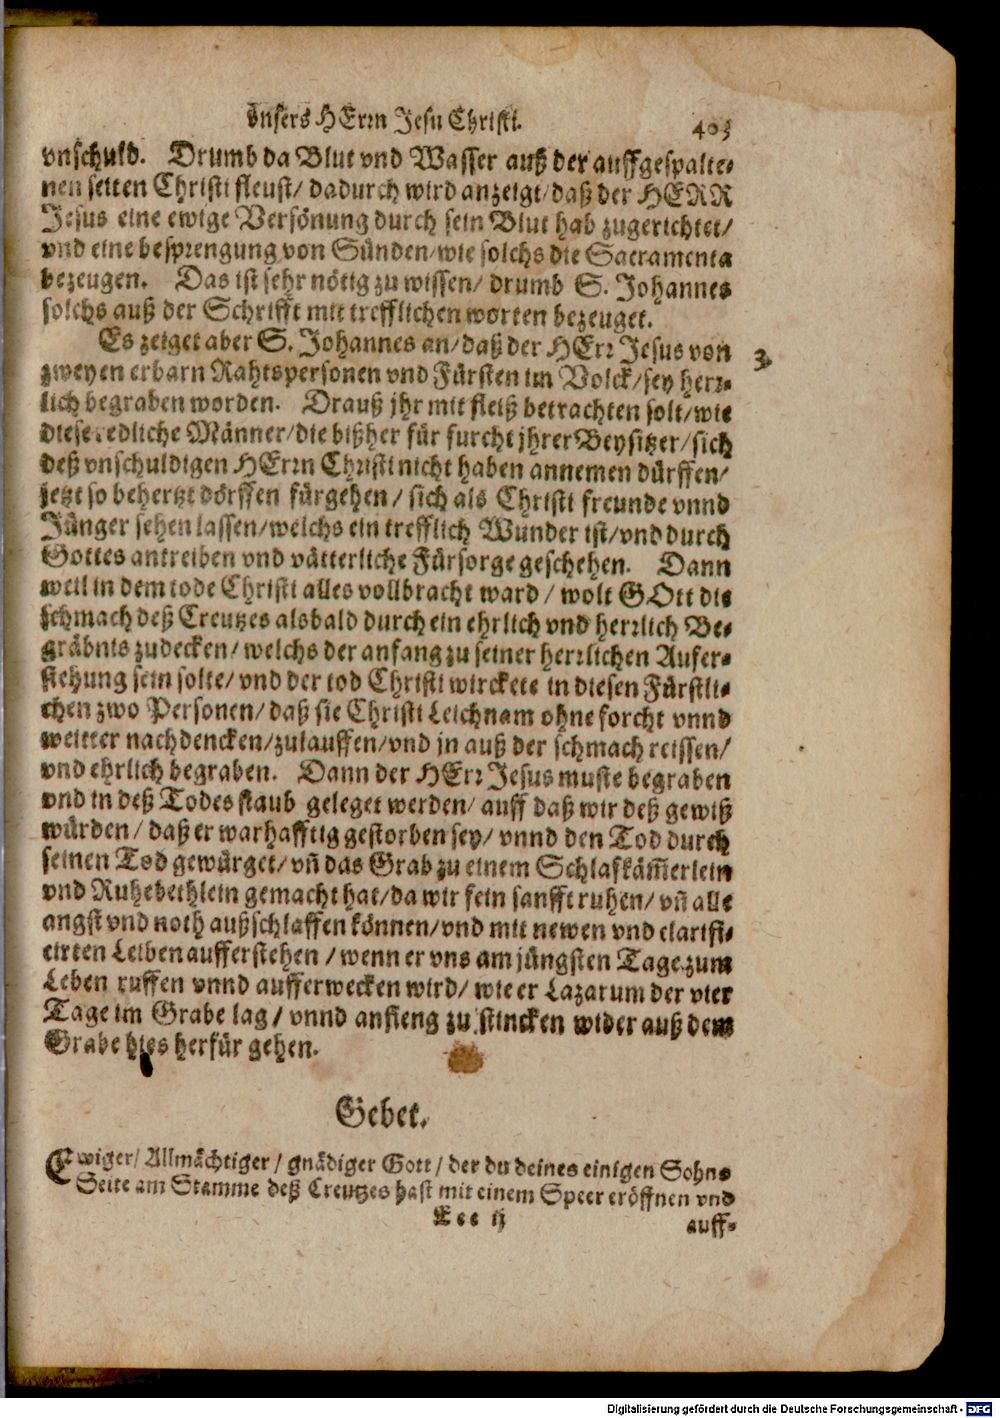 vnsers HErrn Jesu Christi. 403
vnschuld. Drumb da Blut vnd Wasser auß der auffgespalte-
nen seiten Christi fleust/ dadurch wird anzeigt/ daß der HERR
Jesus eine ewige Versönung durch sein Blut hab zugerichtet/
vnd eine besprengung von Sünden/ wie solchs die Sacramenta
bezeugen. Das ist sehr nötig zu wissen/ drumb S. Johannes
solchs auß der Schrifft mit trefflichen worten bezeuget.
Es zeiget aber S. Johannes an/ daß der HErr Jesus von
3.
zweyen erbarn Rahtspersonen vnd Fürsten im Volck/ sey herr-
lich begraben worden. Drauß jhr mit fleiß betrachten solt/ wie
diese redliche Männer/ die bißher für furcht jhrer Beysitzer/ sich
deß vnschuldigen HErrn Christi nicht haben annemen dürffen/
jetzt so behertzt dörffen fürgehen/ sich als Christi freunde vnnd
Jünger sehen lassen/ welchs ein trefflich Wunder ist/ vnd durch
Gottes antreiben vnd vätterliche Fürsorge geschehen. Dann
weil in dem tode Christi alles vollbracht ward/ wolt GOtt die
schmach deß Creutzes alsbald durch ein ehrlich vnd herrlich Be-
gräbnis zudecken/ welchs der anfang zu seiner herrlichen Aufer-
stehung sein solte/ vnd der tod Christi wirckete in diesen Fürstli-
chen zwo Personen/ daß sie Christi Leichnam ohne forcht vnnd
weitter nachdencken/ zulauffen/ vnd jn auß der schmach reissen/
vnd ehrlich begraben. Dann der HErr Jesus muste begraben
vnd in deß Todes staub geleget werden/ auff daß wir deß gewiß
würden/ daß er warhafftig gestorben sey/ vnnd den Tod durch
seinen Tod gewürget/ vñ das Grab zu einem Schlafkäm̃erlein
vnd Ruhebethlein gemacht hat/ da wir fein sanfft ruhen/ vñ alle
angst vnd noth außschlaffen können/ vnd mit newen vnd clarifi-
cirten Leiben aufferstehen/ wenn er vns am jüngsten Tage zum
Leben ruffen vnnd aufferwecken wird/ wie er Lazarum der vier
Tage im Grabe lag/ vnnd anfieng zu stincken wider auß dem
Grabe hies herfür gehen.
Gebet.
EWiger/ Allmächtiger/ gnädiger Gott/ der du deines einigen Sohns
Seite am Stamme deß Creutzes hast mit einem Speer eröffnen vnd
Eee ij auff-
Digitalisierung gefördert durch die Deutsche Forschungsgemeinschaft - DFG